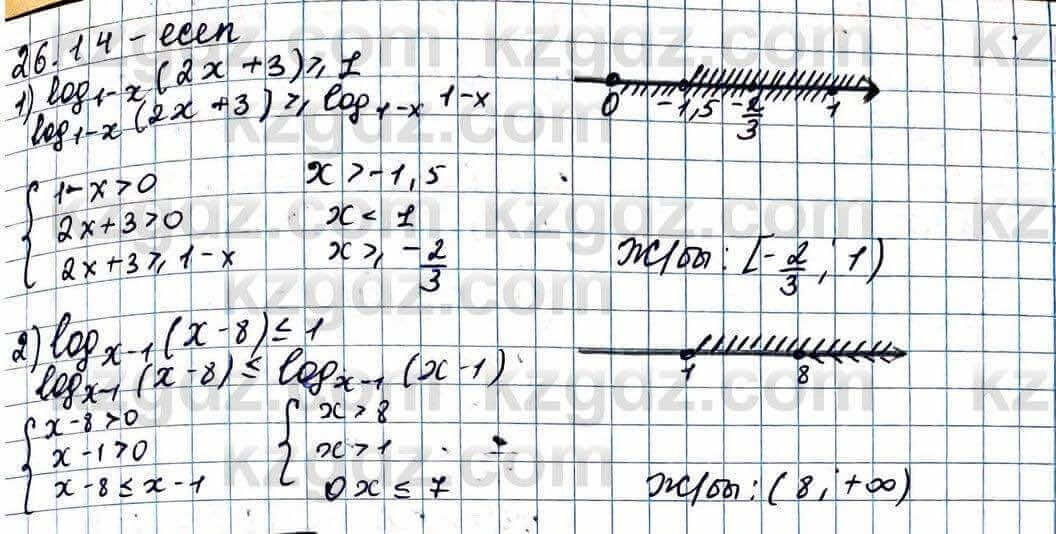 26.14 - есеп
1) log₁₋ₓ(2x+3)≥1
log₁₋ₓ(2x+3)≥log₁₋ₓ 1-x
0 -1,5 -2/3 1
{ 1-x>0 x>-1,5
2x+3>0 x<1
2x+3≥1-x x≥-2/3
Ж/бы: [-2/3; 1)
2) logₓ₋₁(x-8)≤1
logₓ₋₁(x-8)≤logₓ₋₁(x-1)
1 8
{ x-8>0 { x>8
x-1>0 x>1
x-8≤x-1 0x≤7
Ж/бы: (8; +∞)
kzgdz.com